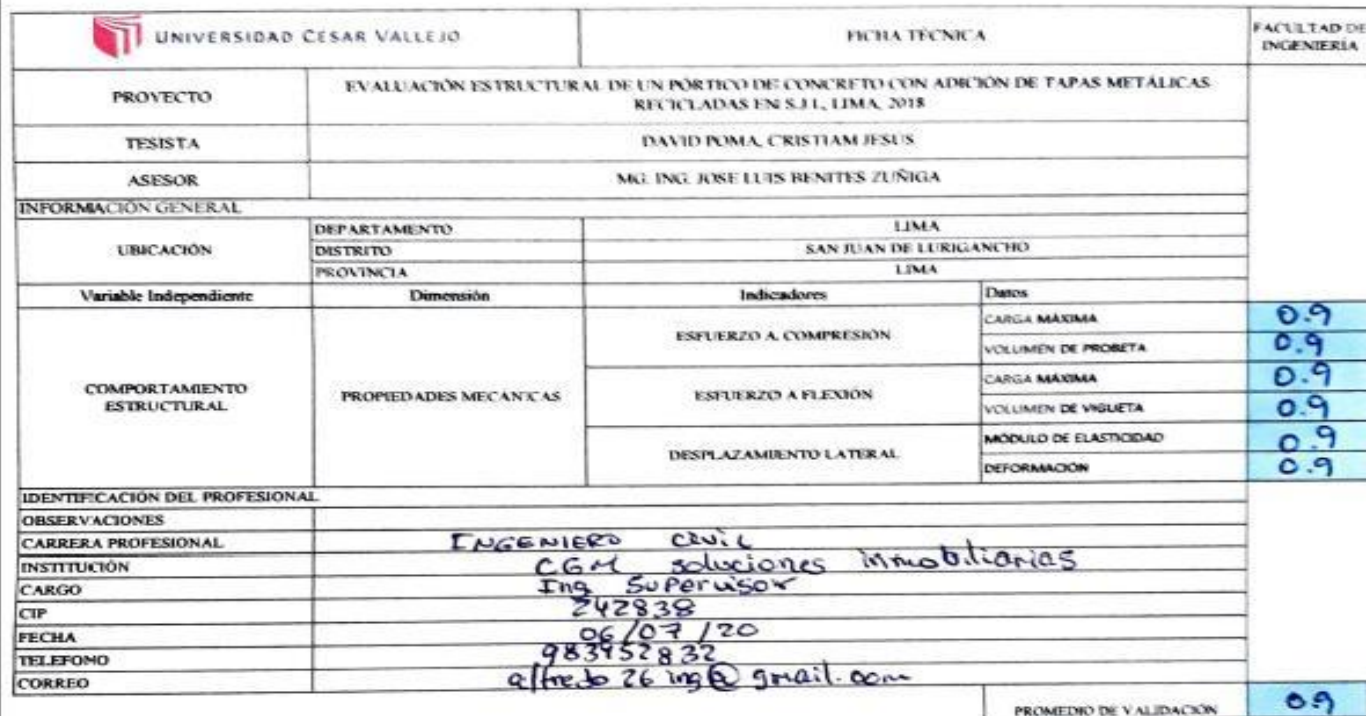 UNIVERSIDAD CÉSAR VALLEJO
FICHA TÉCNICA
FACULTAD DE INGENIERÍA
PROYECTO
EVALUACIÓN ESTRUCTURAL DE UN PÓRTICO DE CONCRETO CON ADICIÓN DE TAPAS METÁLICAS
RECICLADAS EN S.J.L., LIMA, 2018
TESISTA
DAVID POMA, CRISTIAM JESUS
ASESOR
MG. ING. JOSE LUIS BENITES ZUÑIGA
INFORMACIÓN GENERAL
UBICACIÓN
DEPARTAMENTO LIMA
DISTRITO SAN JUAN DE LURIGANCHO
PROVINCIA LIMA
Variable Independiente Dimensión Indicadores Datos
COMPORTAMIENTO
ESTRUCTURAL
PROPIEDADES MECÁNICAS
ESFUERZO A. COMPRESIÓN
CARGA MÁXIMA 0.9
VOLUMEN DE PROBETA 0.9
ESFUERZO A FLEXIÓN
CARGA MÁXIMA 0.9
VOLUMEN DE VIGUETA 0.9
DESPLAZAMIENTO LATERAL
MÓDULO DE ELASTICIDAD 0.9
DEFORMACIÓN 0.9
IDENTIFICACIÓN DEL PROFESIONAL
OBSERVACIONES
CARRERA PROFESIONAL INGENIERO CIVIL
INSTITUCIÓN CGM soluciones inmobiliarias
CARGO Ing Supervisor
CIP 242838
FECHA 06/07/20
TELEFONO 983952832
CORREO alfredo26ing@gmail.com
PROMEDIO DE VALIDACIÓN 0.9